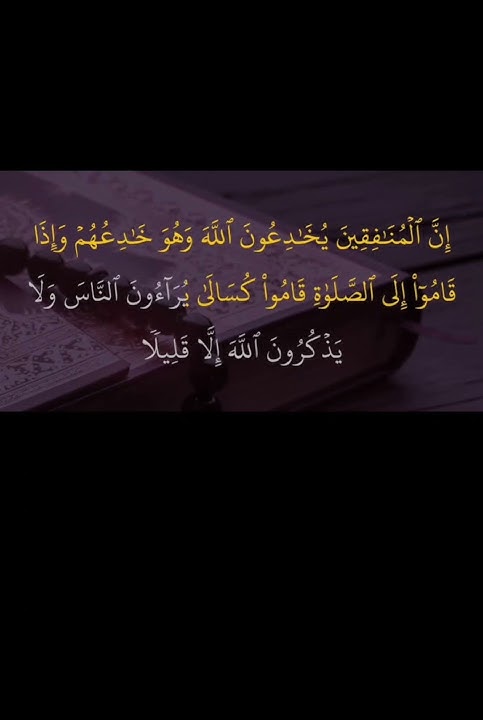 إِنَّ ٱلْمُنَـٰفِقِينَ يُخَـٰدِعُونَ ٱللَّهَ وَهُوَ خَـٰدِعُهُمْ وَإِذَا
قَامُوٓا۟ إِلَى ٱلصَّلَوٰةِ قَامُوا۟ كُسَالَىٰ يُرَآءُونَ ٱلنَّاسَ وَلَا
يَذْكُرُونَ ٱللَّهَ إِلَّا قَلِيلًا